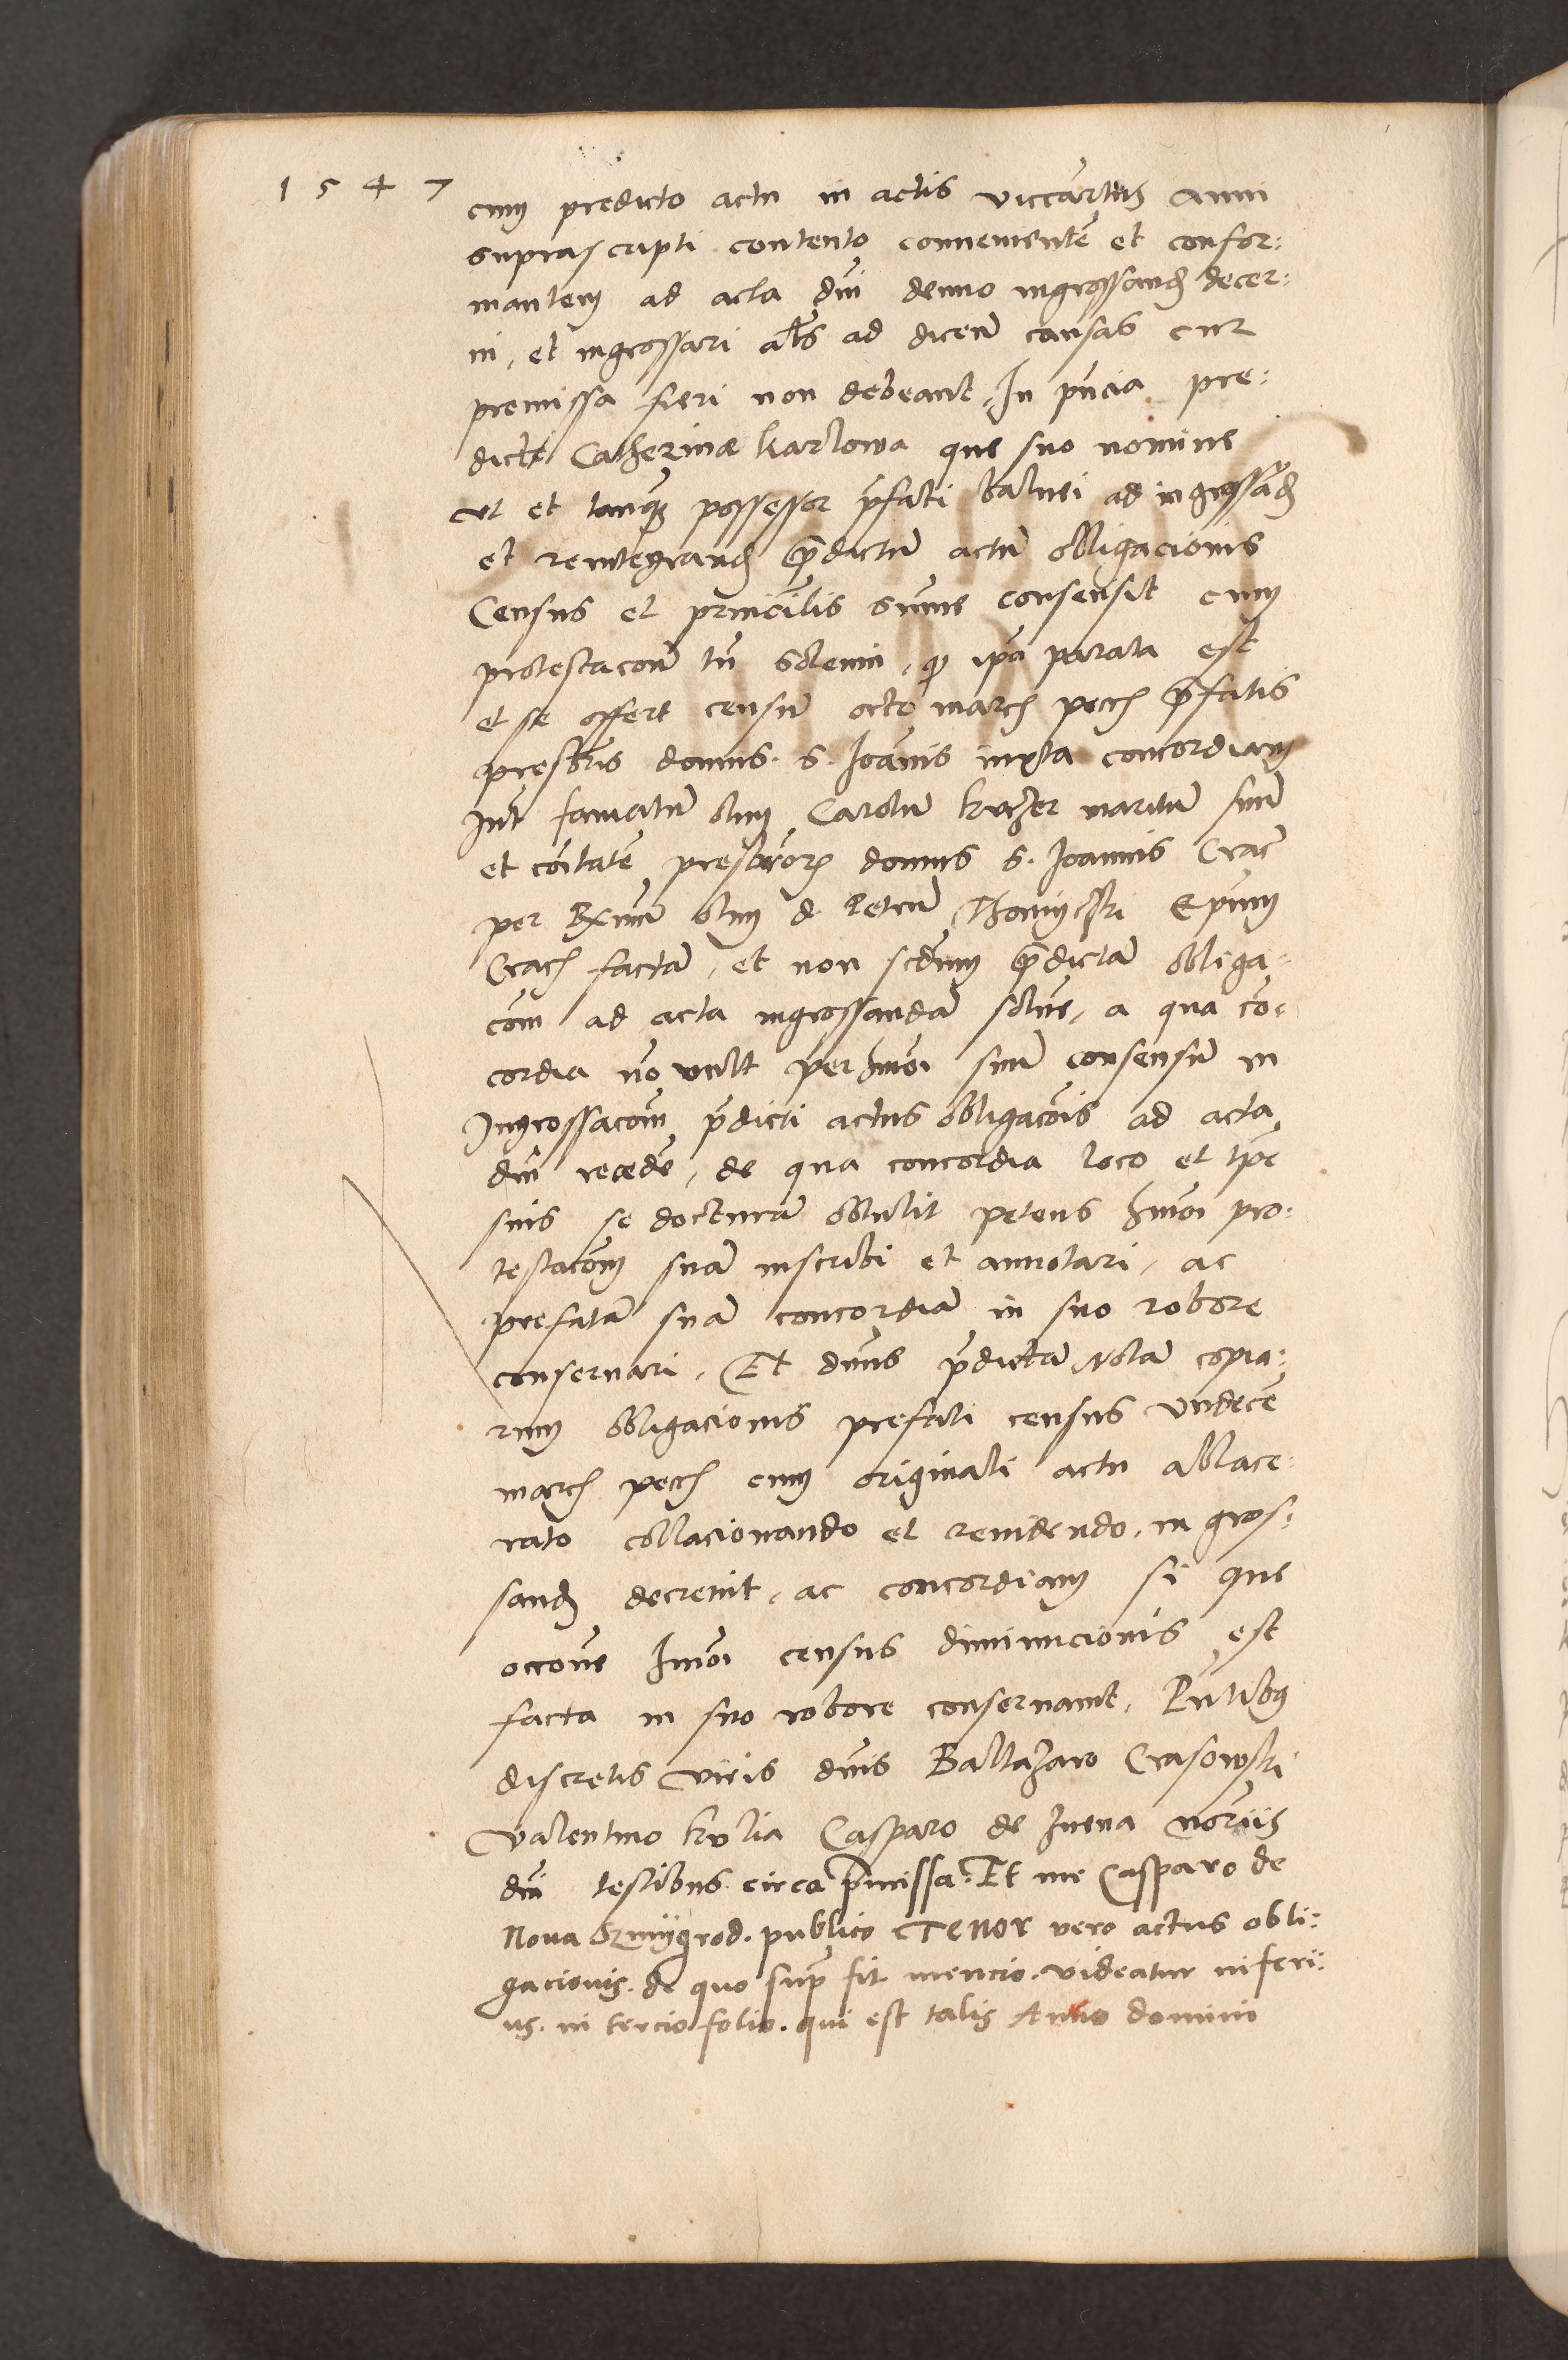 1547
cum predicto actu in actis viccariatus anni
suprascripti contento convenientē et confor:
mantem ad acta dni denuo ingrossand decer:
ni, et ingrossari als ad dicend causas cur
premissa fieri non debeant, In pñcia pre:
dicte Catherinæ karlowa que suo nomine
ut et tanq̃ possessor p̃fati balnei ad ingrossãd
et reintegrand p̃dictũ actũ obligacionis
Census et principlis sum̃e consensit cum
protestacone tñ solenni, q ipa parata est
et se offert censũ octo march pecch p̃fatis
presbris domus. s. Joãnis iuxta concordiam
Int famatũ olim Carolũ kuczer maritũ suũ
et cõitatẽ presbrorʒ domus s. Joannis Crac
per Rxmũ olim d. Petrũ Thomyczki Epum
Crach factã, et non scdum p̃dictã obliga-
cõm ad acta ingrossandã solvẽ, a qua cõ-
cordia nõ vult per hmõi suũ consensũ in
Ingrossacõm p̃dicti actus obligacõis ad acta
dni recedẽ, de qua concordia loco et tpe
suis se docturã obtulit petens hmõi pro:
testacõm suã inscribi et annotari, ac
prefatã suã concordiã in suo robore
conservari, Et dnus p̃dictã Notã copia:
rum obligacionis prefati census undecẽ
march pecch cum originali actu ablace:
rato collacionando et revidendo, in gros:
sand decrevit, ac concordiam si que
occõne hmõi census diminucionis est
facta in suo robore conservavit, Pñtibʒ
discretis viris dnis Baltazaro Crasowski
Valentino kulia Casparo de Iuena noriis
dni testibus circa p̃missa. Et me Casparo de
Nova Szmygrod. publico Tenor vero actus obli:
gacionis. de quo sup̃ fit mencio. videatur inferi:
us. in tercio folio. qui est talis Anno domini